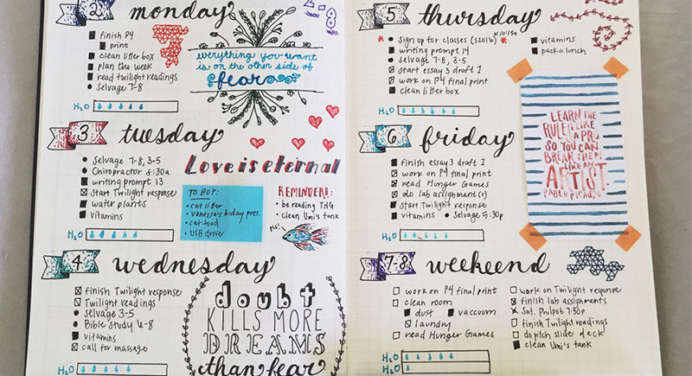 2 monday
finish P4
print
clean litter box
plan the week
read twilight readings
selvage 7-8
H2O
everything you want
is on the other side of
fear
3 tuesday
selvage 7-8, 3-5
Chiropractor 8:30a
writing prompt 13
start Twilight response
water plants
vitamins
H2O
Love is eternal
TO BUY:
cat litter
vanessa's bday pres.
cat food
USB driver
REMINDERS:
be reading THG
clean Umi's tank
4 wednesday
finish Twilight response
Twilight readings
selvage 3-5
Bible study 6-8
vitamins
call for massage
H2O
doubt
KILLS MORE
DREAMS
than fear
5 thursday
sign up for classes (s2016)
writing prompt 14
selvage 7-8, 3-5
start essay 3 draft 1
work on P4 final print
clean litter box
vitamins
pack lunch
H2O
LEARN THE
RULES LIKE
A PRO,
SO YOU CAN
BREAK THEM
LIKE AN
ARTIST.
PABLO PICASSO
6 friday
finish essay 3 draft 1
work on P4 final print
read Hunger Games
do lab assignment(s)
start Twilight response
vitamins
selvage 5:30p
H2O
7-8 weekend
work on P4 final print
clean room
dust
vaccuum
laundry
read Hunger Games
work on Twilight response
finish lab assignments
Sat. Philpot 7:30p
finish Twilight readings
do pitch slide deck
clean Umi's tank
H2O